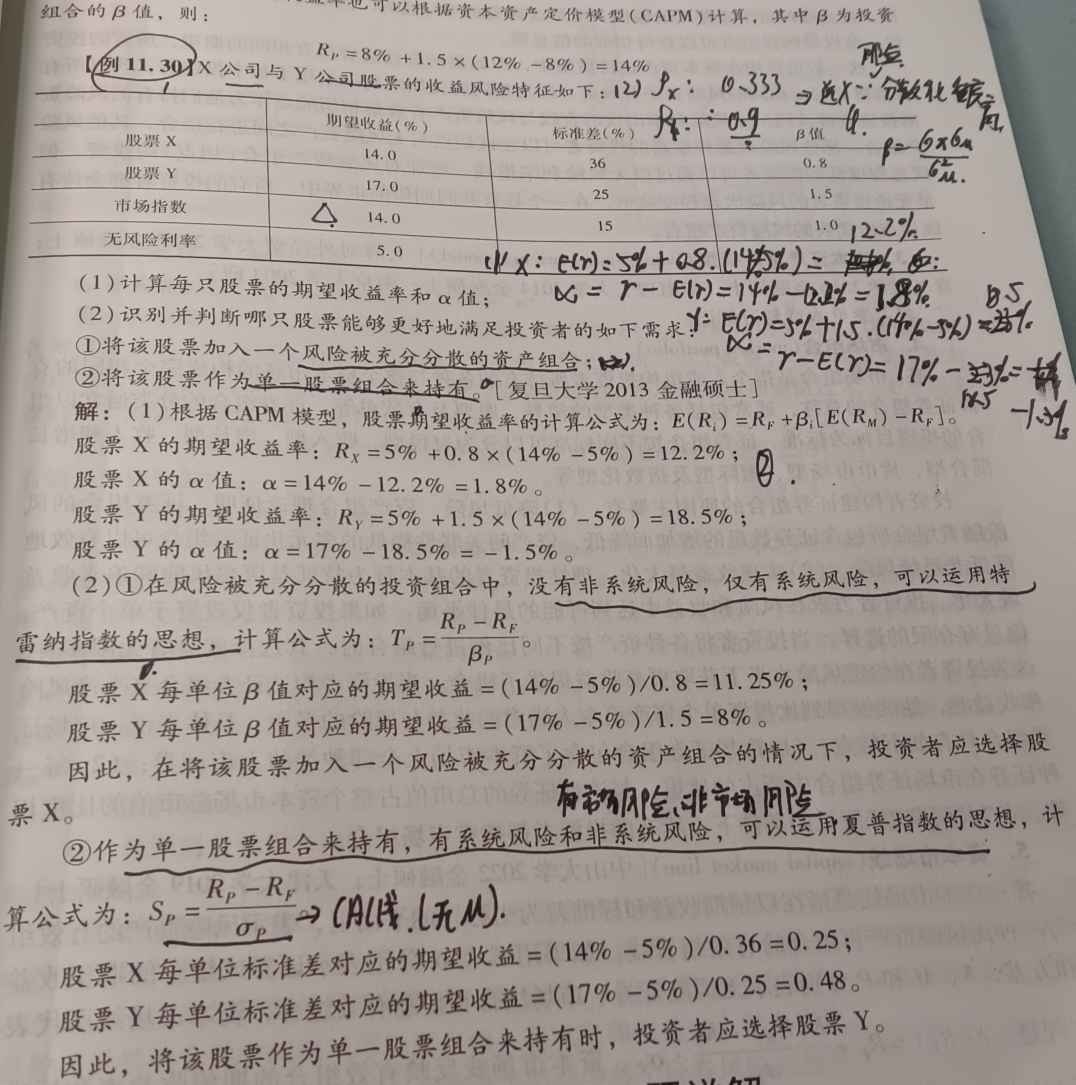 率也可以根据资本资产定价模型(CAPM)计算，其中β为投资
组合的β值，则：
R_P=8%+1.5×(12%-8%)=14%
【例11.30】X公司与Y公司股票的收益风险特征如下：
(2) ρx: 0.333 ⇒选X∵分散化程度
0.9
期望收益(%) 标准差(%) β值
股票X 14.0 36 0.8
股票Y 17.0 25 1.5
市场指数 △ 14.0 15 1.0
无风险利率 5.0
12.2%
(1) X: E(r)=5%+0.8.(14%-5%)=
(1)计算每只股票的期望收益率和α值；
α=r-E(r)=14%-12.2%=1.8%.
(2)识别并判断哪只股票能够更好地满足投资者的如下需求：
Y: E(r)=5%+1.5.(14%-5%)=
①将该股票加入一个风险被充分分散的资产组合；
α=r-E(r)=17%-
18.5
②将该股票作为单一股票组合来持有。[复旦大学2013金融硕士]
解：(1)根据CAPM模型，股票期望收益率的计算公式为：E(R_i)=R_F+β_i[E(R_M)-R_F]。
股票X的期望收益率：R_X=5%+0.8×(14%-5%)=12.2%；
②.
股票X的α值：α=14%-12.2%=1.8%。
股票Y的期望收益率：R_Y=5%+1.5×(14%-5%)=18.5%；
股票Y的α值：α=17%-18.5%=-1.5%。
(2)①在风险被充分分散的投资组合中，没有非系统风险，仅有系统风险，可以运用特
雷纳指数的思想，计算公式为：T_P=(R_P-R_F)/β_P。
股票X每单位β值对应的期望收益=(14%-5%)/0.8=11.25%；
股票Y每单位β值对应的期望收益=(17%-5%)/1.5=8%。
因此，在将该股票加入一个风险被充分分散的资产组合的情况下，投资者应选择股
票X。
有市场风险、非市场风险
②作为单一股票组合来持有，有系统风险和非系统风险，可以运用夏普指数的思想，计
算公式为：S_P=(R_P-R_F)/σ_P。→CAL线.(无M).
股票X每单位标准差对应的期望收益=(14%-5%)/0.36=0.25；
股票Y每单位标准差对应的期望收益=(17%-5%)/0.25=0.48。
因此，将该股票作为单一股票组合来持有时，投资者应选择股票Y。